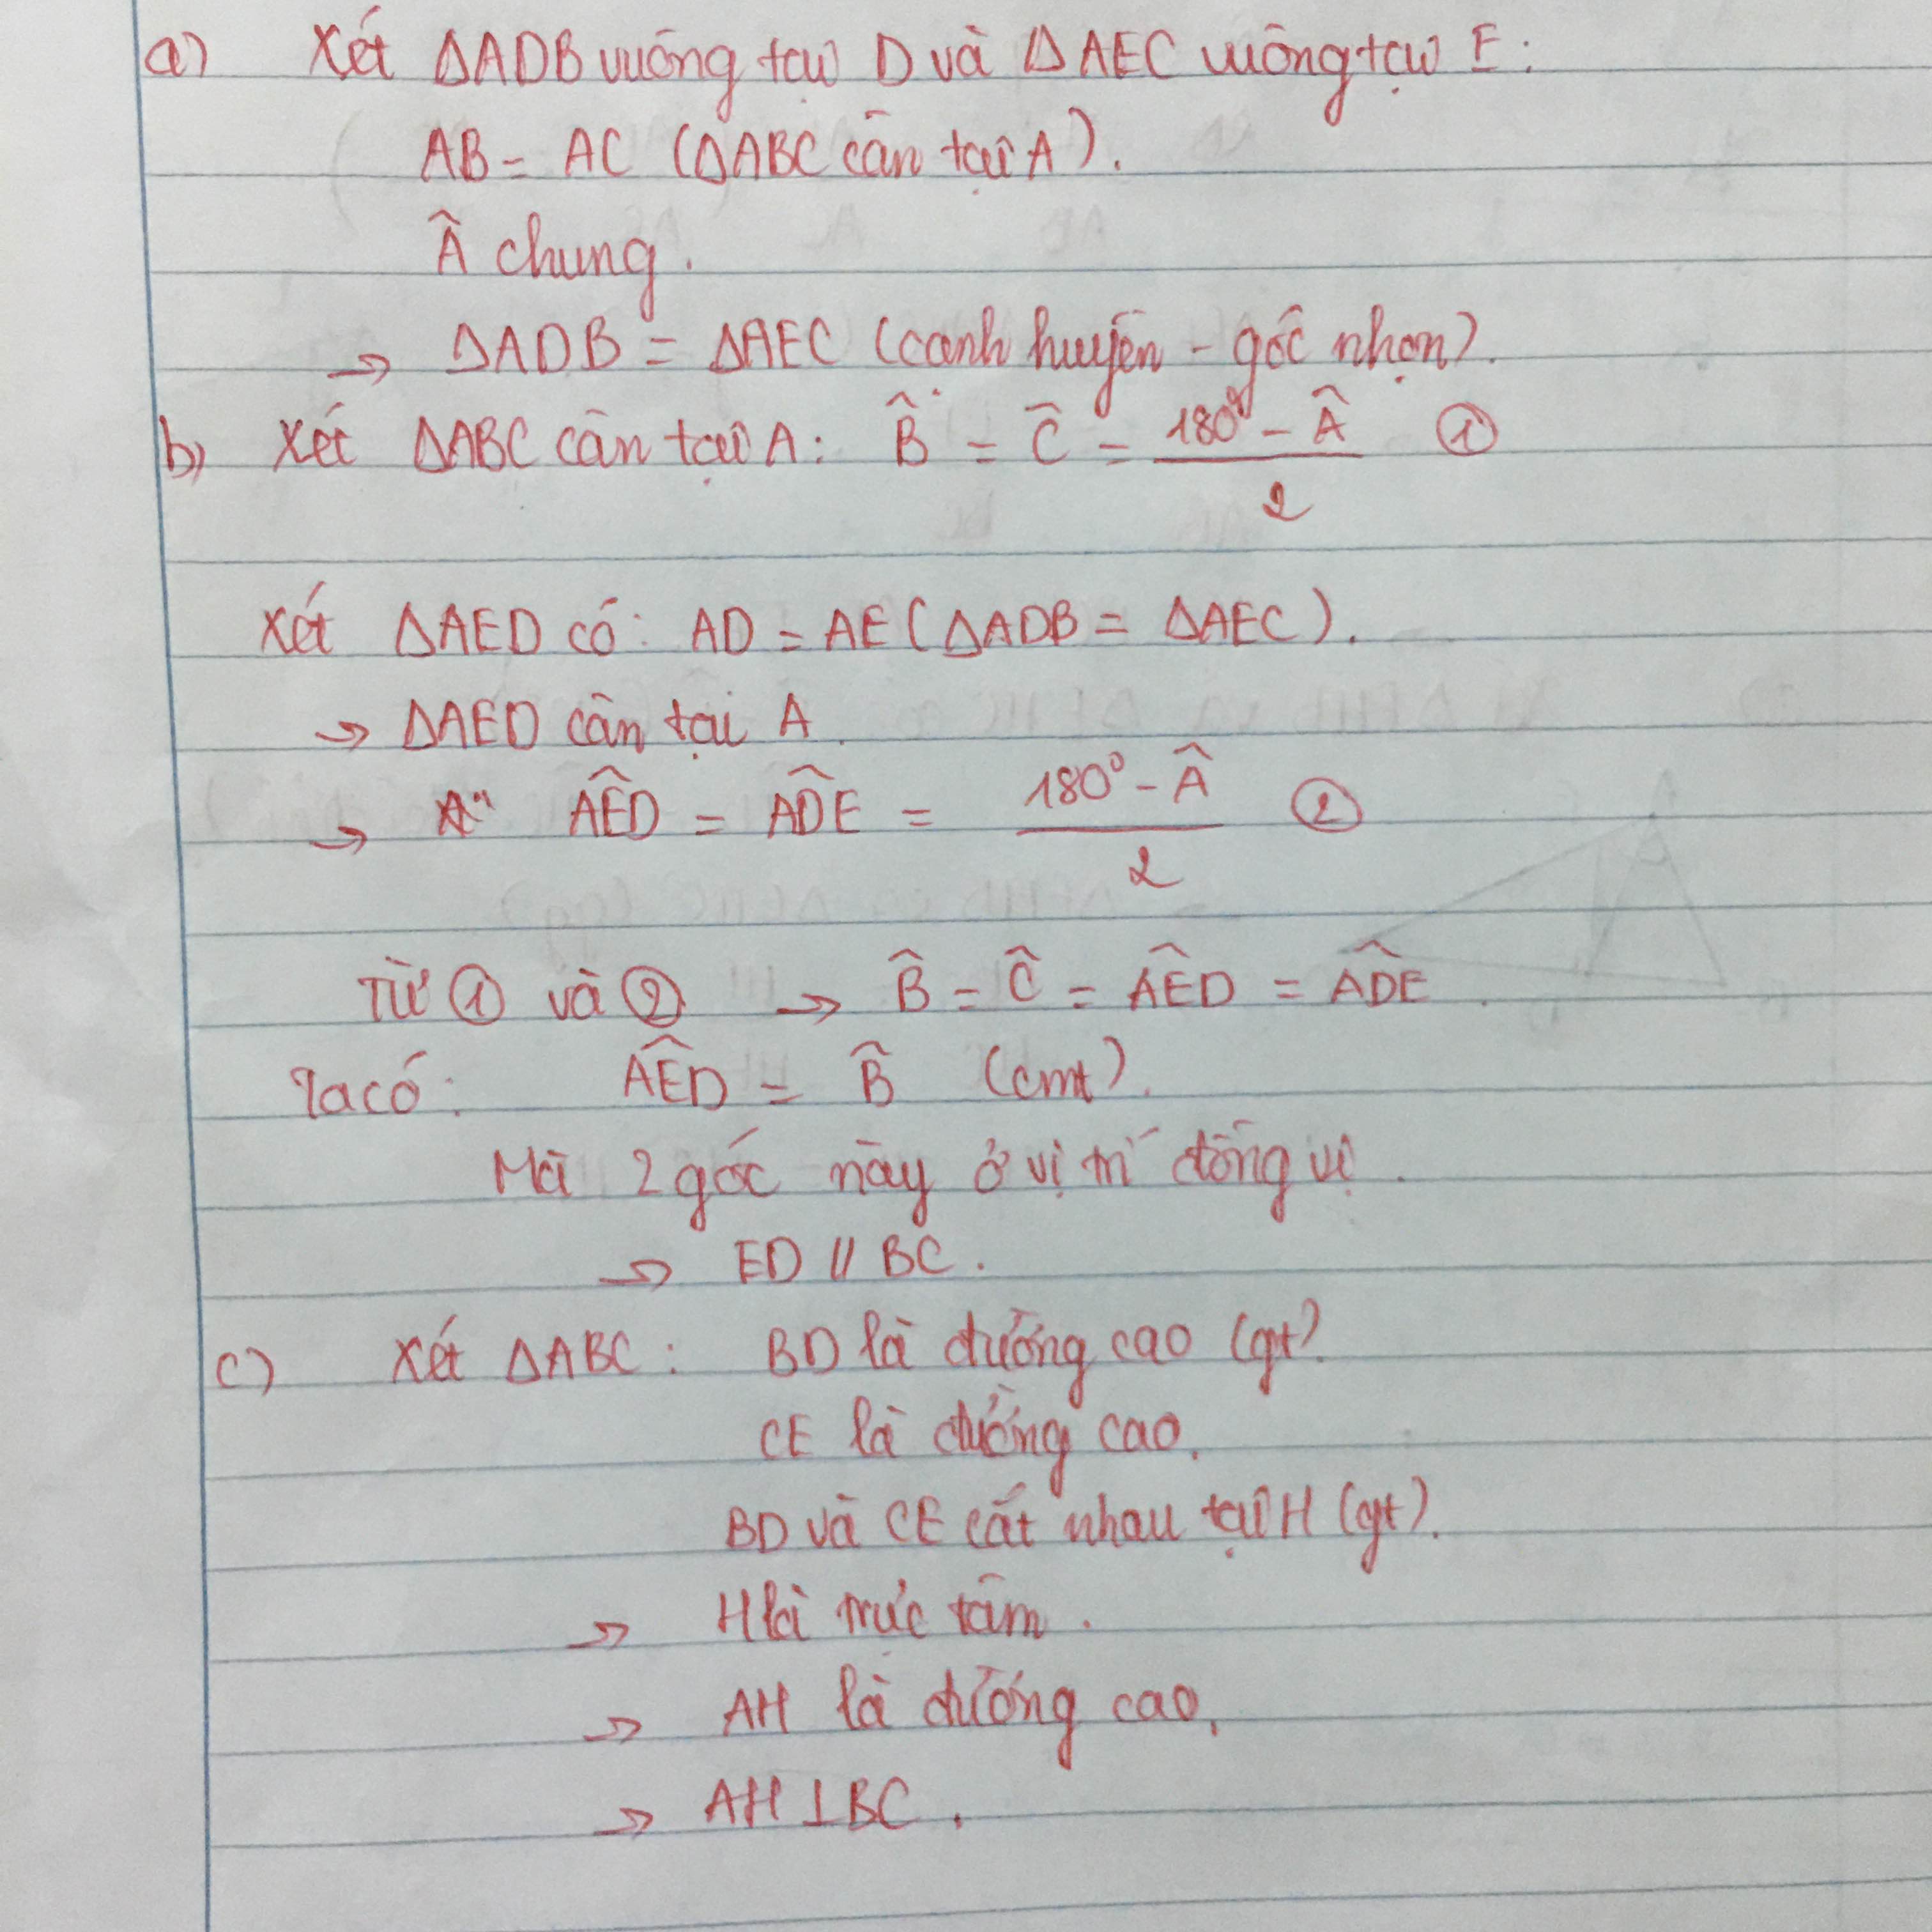 a) Xét ΔADB vuông tại D và ΔAEC vuông tại E:
AB = AC (ΔABC cân tại A).
Â chung.
→ ΔADB = ΔAEC (cạnh huyền - góc nhọn).
b) Xét ΔABC cân tại A: B̂ = Ĉ = (180° - Â)/2 ①
Xét ΔAED có: AD = AE (ΔADB = ΔAEC).
→ ΔAED cân tại A.
→ AÊD = AD̂E = (180° - Â)/2 ②
Từ ① và ② → B̂ = Ĉ = AÊD = AD̂E.
Ta có: AÊD = B̂ (cmt).
Mà 2 góc này ở vị trí đồng vị.
→ ED // BC.
c) Xét ΔABC: BD là đường cao (gt).
CE là đường cao.
BD và CE cắt nhau tại H (gt).
→ H là trực tâm.
→ AH là đường cao.
→ AH ⊥ BC.